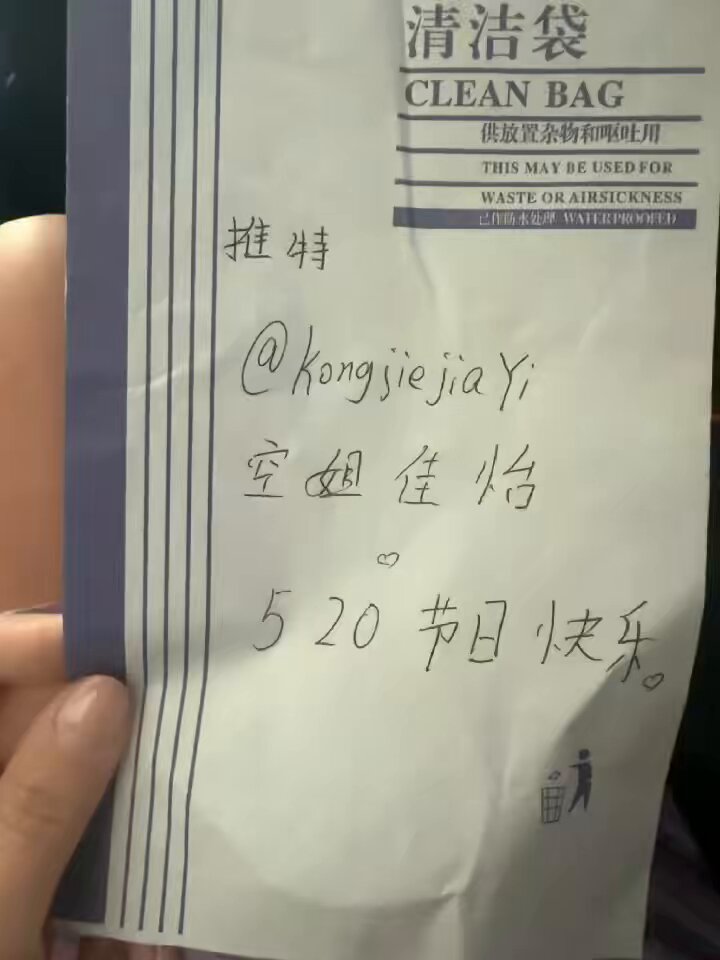 清洁袋
CLEAN BAG
供放置杂物和呕吐用
THIS MAY BE USED FOR
WASTE OR AIRSICKNESS
已作防水处理 WATERPROOFED
推特
@kongjiejiaYi
空姐佳怡
520节日快乐